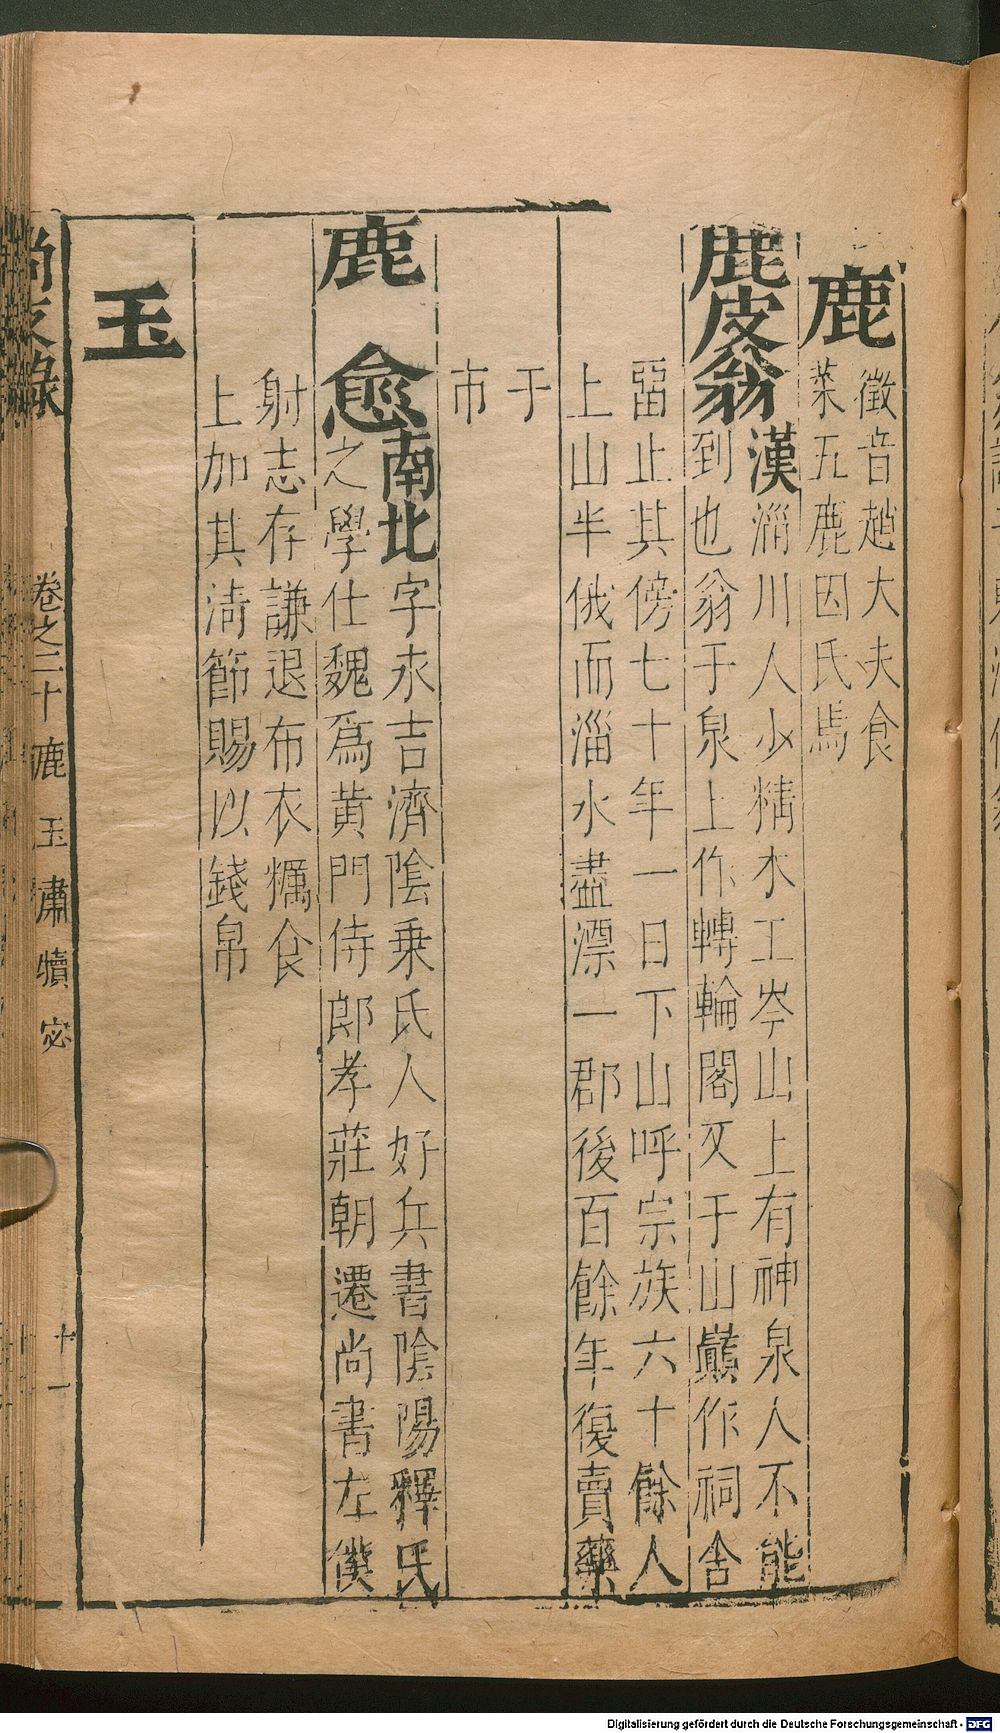 鹿
徵音趙大夫食
菜五鹿因氏焉
鹿皮翁
漢淄川人少精木工岑山上有神泉人不能
到也翁于泉上作轉輪閣又于山巔作祠舍
畱止其傍七十年一日下山呼宗族六十餘人
上山半俄而淄水盡漂一郡後百餘年復賣藥
于
市
鹿悆
南北字永吉濟陰乗氏人好兵書陰陽釋氏
之學仕魏爲黄門侍郎孝莊朝遷尚書左僕
射志存謙退布衣糲食
上加其淸節賜以錢帛
玉
尚友錄 卷之二十 鹿 玉 肅 犢 宓 十一
Digitalisierung gefördert durch die Deutsche Forschungsgemeinschaft - DFG